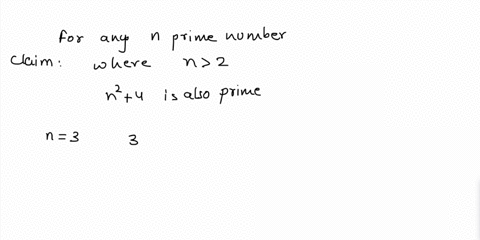 for any n prime number
claim: where n > 2
n²+4 is also prime
n = 3 3